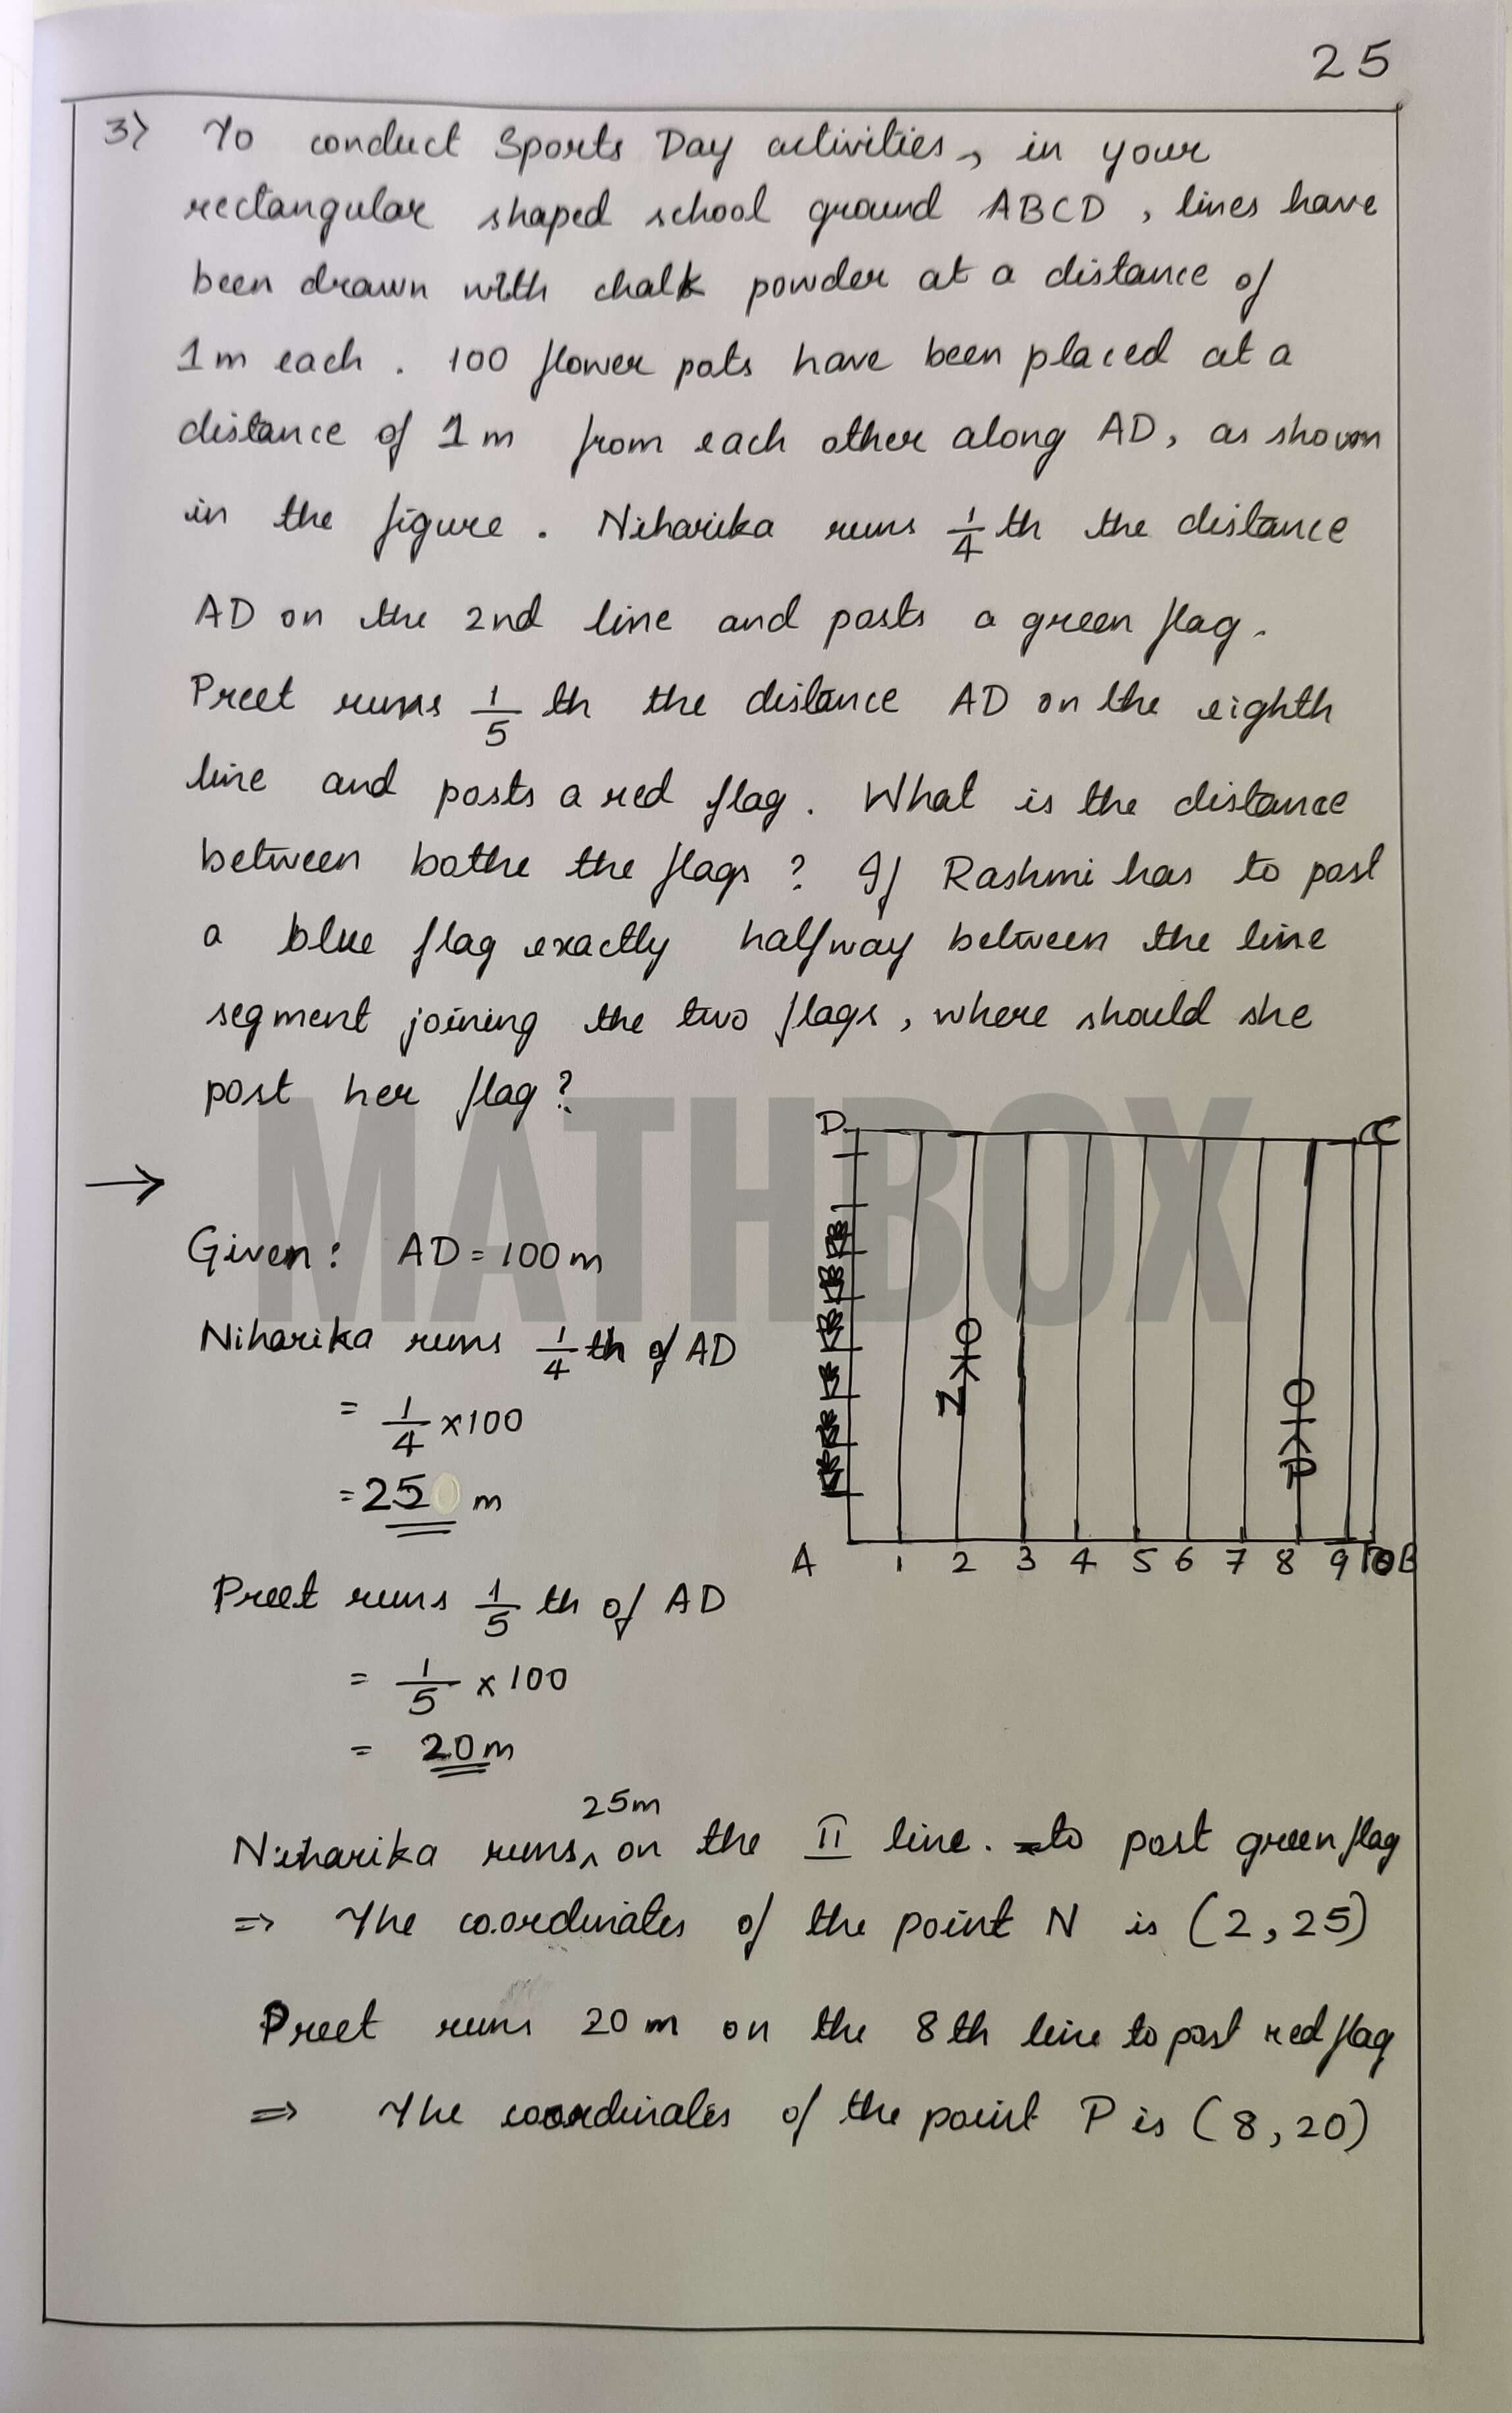 25
3) To conduct Sports Day activities, in your
rectangular shaped school ground ABCD, lines have
been drawn with chalk powder at a distance of
1m each. 100 flower pots have been placed at a
distance of 1m from each other along AD, as shown
in the figure. Niharika runs 1/4 th the distance
AD on the 2nd line and posts a green flag.
Preet runs 1/5 th the distance AD on the eighth
line and posts a red flag. What is the distance
between bothe the flags? If Rashmi has to post
a blue flag exactly halfway between the line
segment joining the two flags, where should she
post her flag?
MATHBOX
D C
→
Given: AD = 100m
Niharika runs 1/4 th of AD
= 1/4 × 100
= 25 m
N
P
A 1 2 3 4 5 6 7 8 9 10 B
Preet runs 1/5 th of AD
= 1/5 × 100
= 20m
Niharika runs 25m on the II line. to post green flag
⇒ The coordinates of the point N is (2, 25)
Preet runs 20 m on the 8th line to post red flag
⇒ The coordinates of the point P is (8, 20)